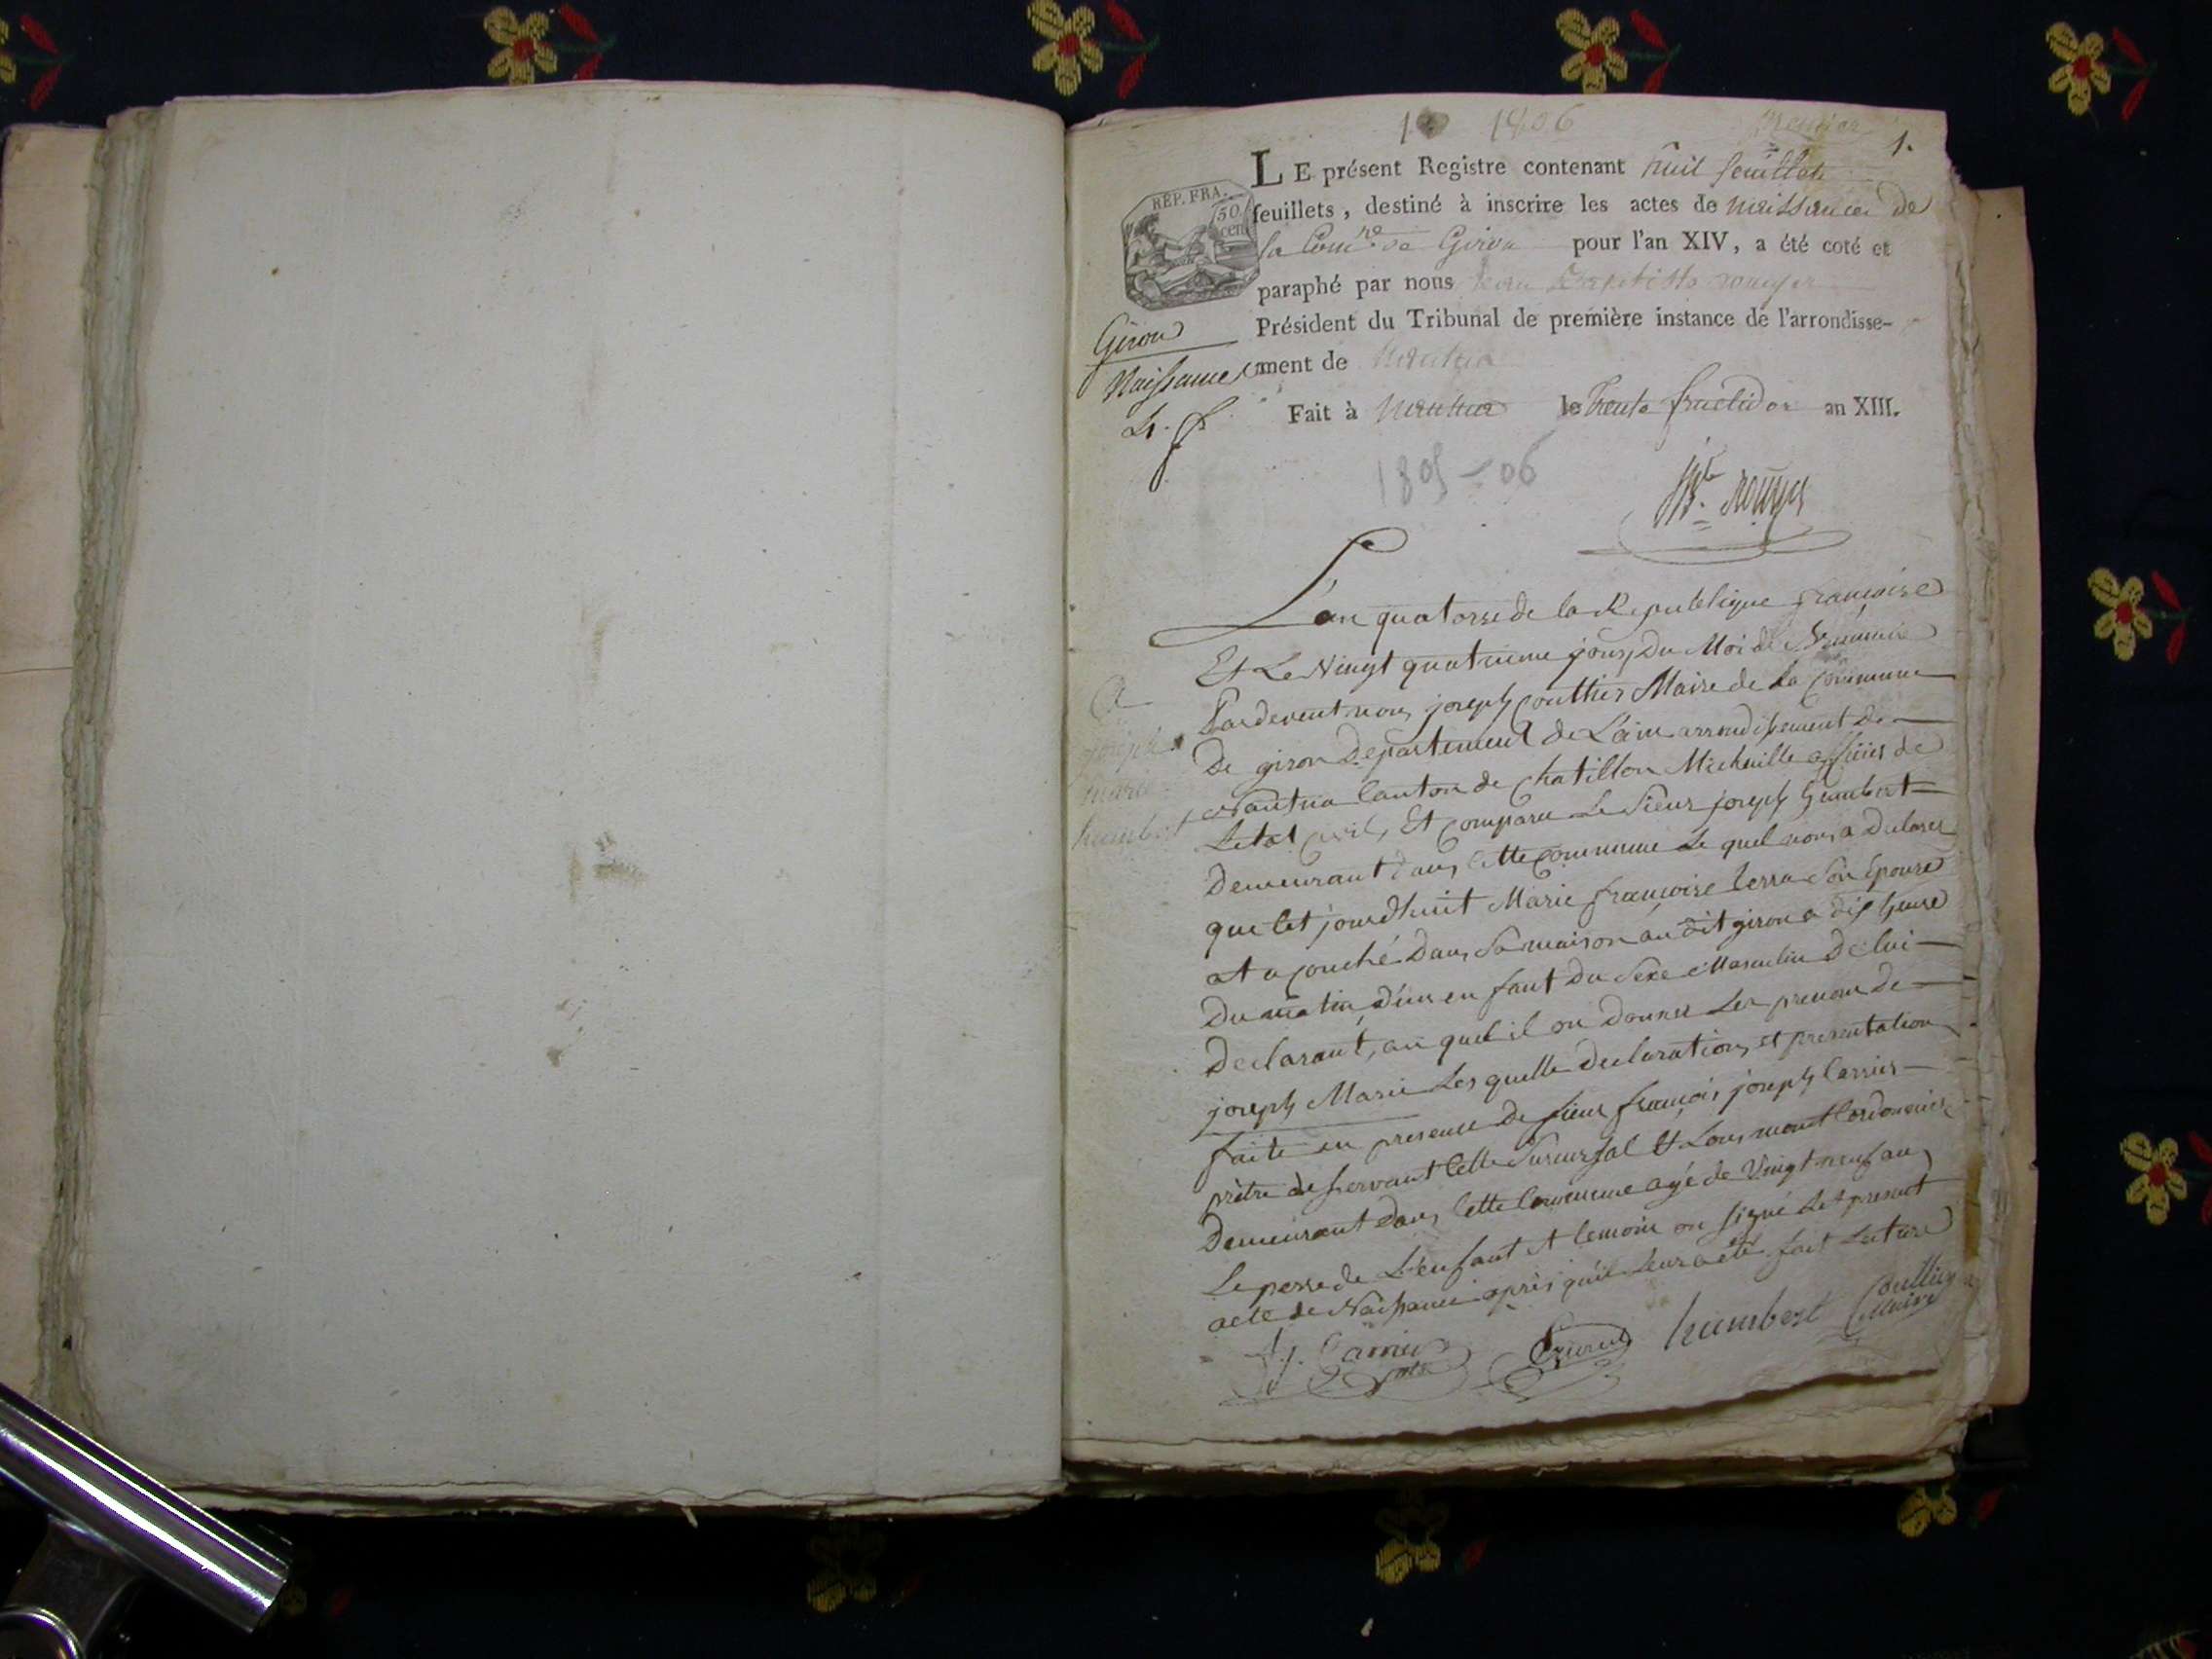 1 1806
premier 1.
LE présent Registre contenant huit feuillets
feuillets, destiné à inscrire les actes de naissances de
la Com.ne de Giron pour l'an XIV, a été coté et
paraphé par nous jean Baptiste rouyer
Président du Tribunal de première instance de l'arrondisse-
ment de nantua
Fait à nantua le trente fructidor an XIII.
REP. FRA.
50
cen
Giron
Naissances
1805-06
JB.te rouyer
L'an quatorze de la Republique françoise
Et Le Vingt quatrieme jours Du Moi de
Pardevent nous joseph Couttier Maire de La Commune
De giron Departement de L'ain arrondissement de
Nantua Canton de Chatillon Michaille officier de
Letat civil, Et Comparu Le Sieur joseph humbert
Demeurant dans Cette Commune Le quel nous a Declarer
que Cet jourd'huit Marie françoise Son Epouse
at acouché Dans Sa maison au dit giron a dix heure
Du matin D'un en fant Du Sexe Masculin De lui
Declarant, au quel il on Donner Les prenom de
joseph Marie Les quelle Declaration, et presentation
faite en presence de sieur françois joseph Carrier
prètre deservant Cette Sucursal Et Cordonnier
Demeurant dans Cette Commune agé de Vingt neuf ans
Le perre de L'enfant et temoin on signé Let present
acte de Naissance après qu'il Leur a été fait Lecture
joseph
marie
humbert
f. j. Carrier humbert Couttier
Maire